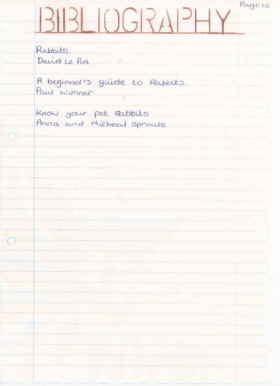 Page 10
BIBLIOGRAPHY
Rabbits
David Le Roi
A beginner's guide to Rabbits
Paul Winner
Know your pet Rabbits
Anna and Micheal Sproule